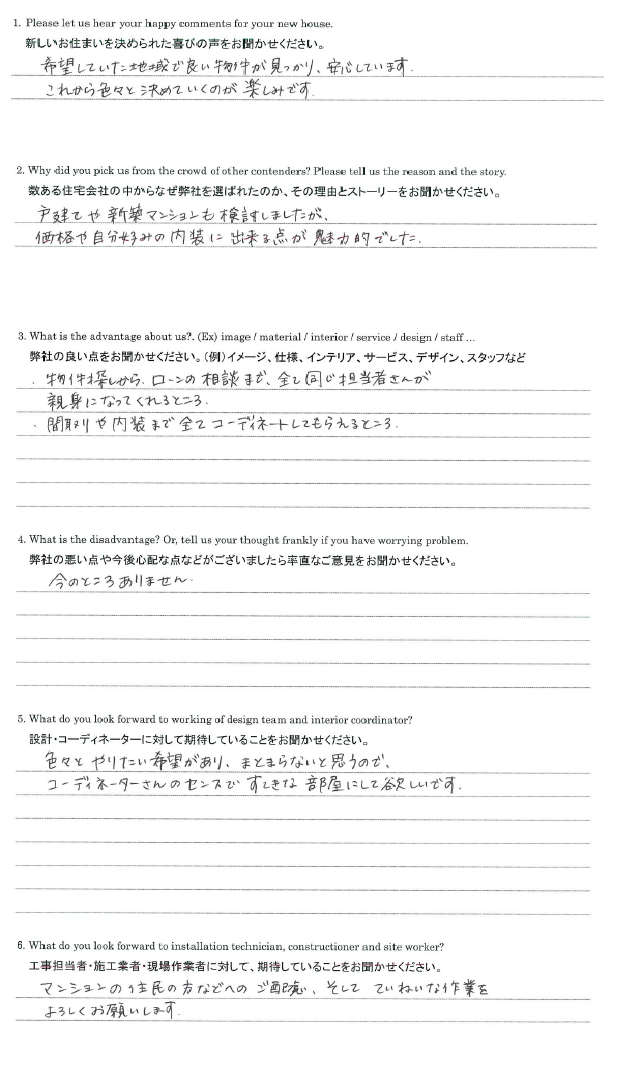 1. Please let us hear your happy comments for your new house.
新しいお住まいを決められた喜びの声をお聞かせください。
希望していた地域で良い物件が見つかり、安心しています.
これから色々と決めていくのが楽しみです.
2. Why did you pick us from the crowd of other contenders? Please tell us the reason and the story.
数ある住宅会社の中からなぜ弊社を選ばれたのか、その理由とストーリーをお聞かせください。
戸建てや新築マンションも検討しましたが、
価格や自分好みの内装に出来る点が魅力的でした.
3. What is the advantage about us?. (Ex) image / material / interior / service / design / staff ...
弊社の良い点をお聞かせください。(例)イメージ、仕様、インテリア、サービス、デザイン、スタッフなど
. 物件探しから、ローンの相談まで、全て同じ担当者さんが
親身になってくれるところ.
. 間取りや内装まで全てコーディネートしてもらえるところ.
4. What is the disadvantage? Or, tell us your thought frankly if you have worrying problem.
弊社の悪い点や今後心配な点などがございましたら率直なご意見をお聞かせください。
今のところありません.
5. What do you look forward to working of design team and interior coordinator?
設計・コーディネーターに対して期待していることをお聞かせください。
色々とやりたい希望があり、まとまらないと思うので、
コーディネーターさんのセンスですてきな部屋にして欲しいです.
6. What do you look forward to installation technician, constructioner and site worker?
工事担当者・施工業者・現場作業者に対して、期待していることをお聞かせください。
マンションの住民の方などへのご配慮、そしてていねいな作業を
よろしくお願いします.